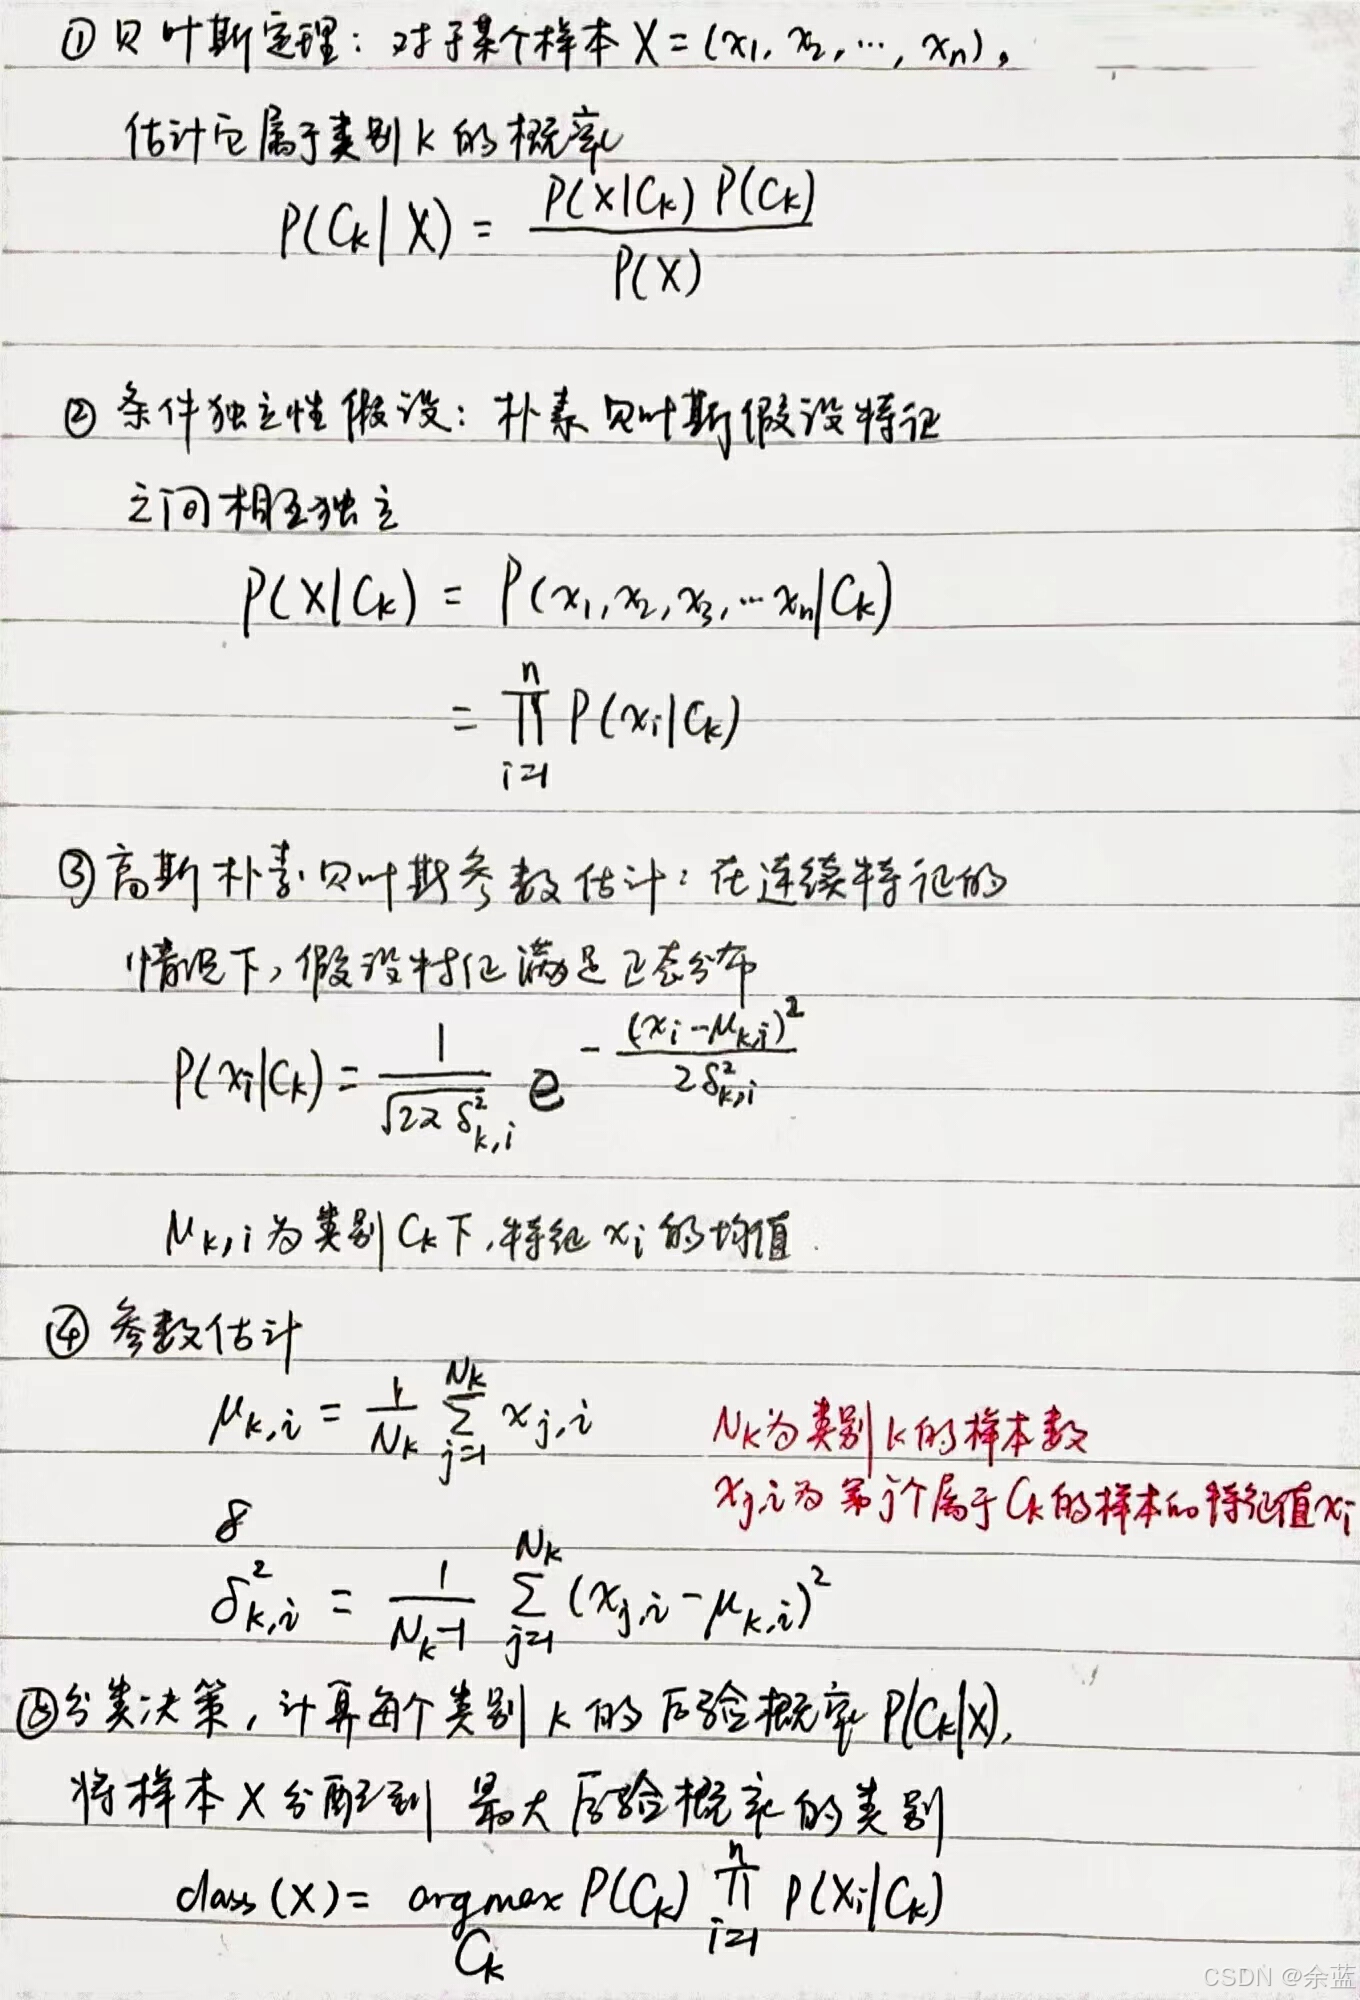 ①贝叶斯定理：对于某个样本 X = (x₁, x₂, …, xₙ)，
估计它属于类别 k 的概率
P(Cₖ|X) = P(X|Cₖ) P(Cₖ) / P(X)
② 条件独立性假设：朴素贝叶斯假设特征
之间相互独立
P(X|Cₖ) = P(x₁, x₂, x₃, … xₙ|Cₖ)
= ∏_{i=1}^{n} P(xᵢ|Cₖ)
③高斯朴素贝叶斯参数估计：在连续特征的
情况下，假设特征满足正态分布
P(xᵢ|Cₖ) = 1/√(2π δ²_{k,i}) e^{-(xᵢ-μ_{k,i})²/(2δ²_{k,i})}
μ_{k,i} 为类别 Cₖ 下，特征 xᵢ 的均值.
④ 参数估计
μ_{k,i} = 1/Nₖ ∑_{j=1}^{Nₖ} x_{j,i}
Nₖ为类别 k 的样本数
x_{j,i} 为第 j 个属于 Cₖ 的样本的特征值 xᵢ
δ
δ²_{k,i} = 1/(Nₖ-1) ∑_{j=1}^{Nₖ} (x_{j,i} - μ_{k,i})²
⑤分类决策，计算每个类别 k 的后验概率 P(Cₖ|X)，
将样本 X 分配到 最大后验概率的类别
class (X) = argmax_{Cₖ} P(Cₖ) ∏_{i=1}^{n} P(Xᵢ|Cₖ)
CSDN @余蓝